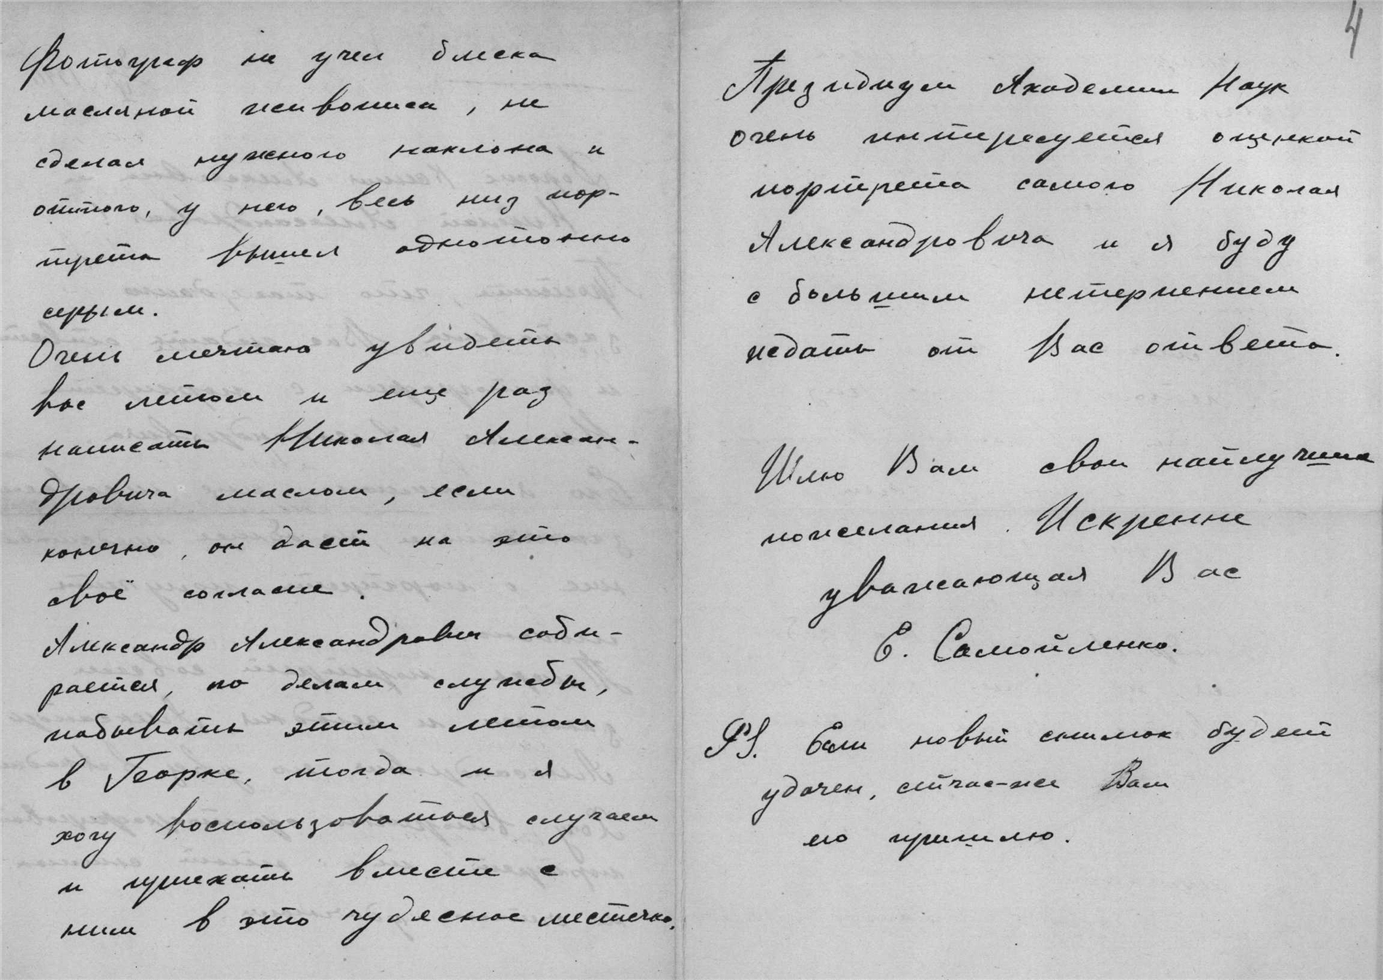 Фотограф не учел блеска
масляной живописи, не
сделал нужного наклона и
оттого, у него, весь низ пор-
трета вышел однотонно
серым.
Очень мечтаю увидеть
вас летом и еще раз
написать Николая Алексан-
дровича маслом, если
конечно, он даст на это
своё согласие.
Александр Александрович соби-
рается, по делам службы,
побывать этим летом
в Борке, тогда и я
хочу воспользоваться случаем
и приехать вместе с
ним в это чудесное местечко.
4
Президиум Академии Наук
очень интересуется оценкой
портрета самого Николая
Александровича и я буду
с большим нетерпением
ждать от Вас ответа.
Шлю Вам свои найлучшие
пожелания. Искренне
уважающая Вас
Е. Самойленко.
PS. Если новый снимок будет
удачен, сейчас-же Вам
его пришлю.